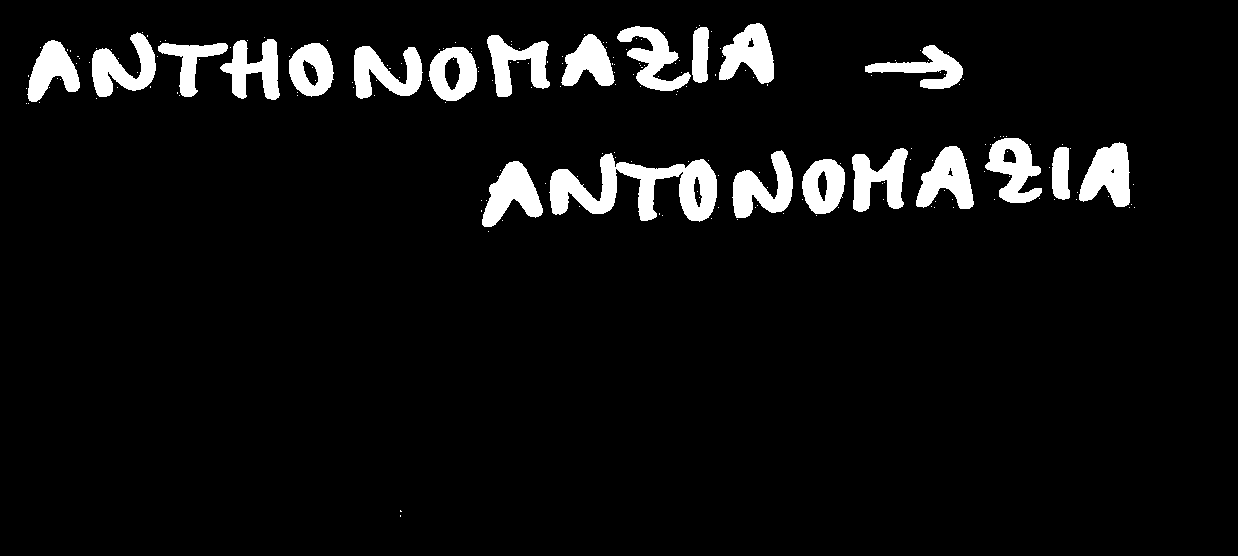 ANTHONOMAZIA →
ANTONOMAZIA